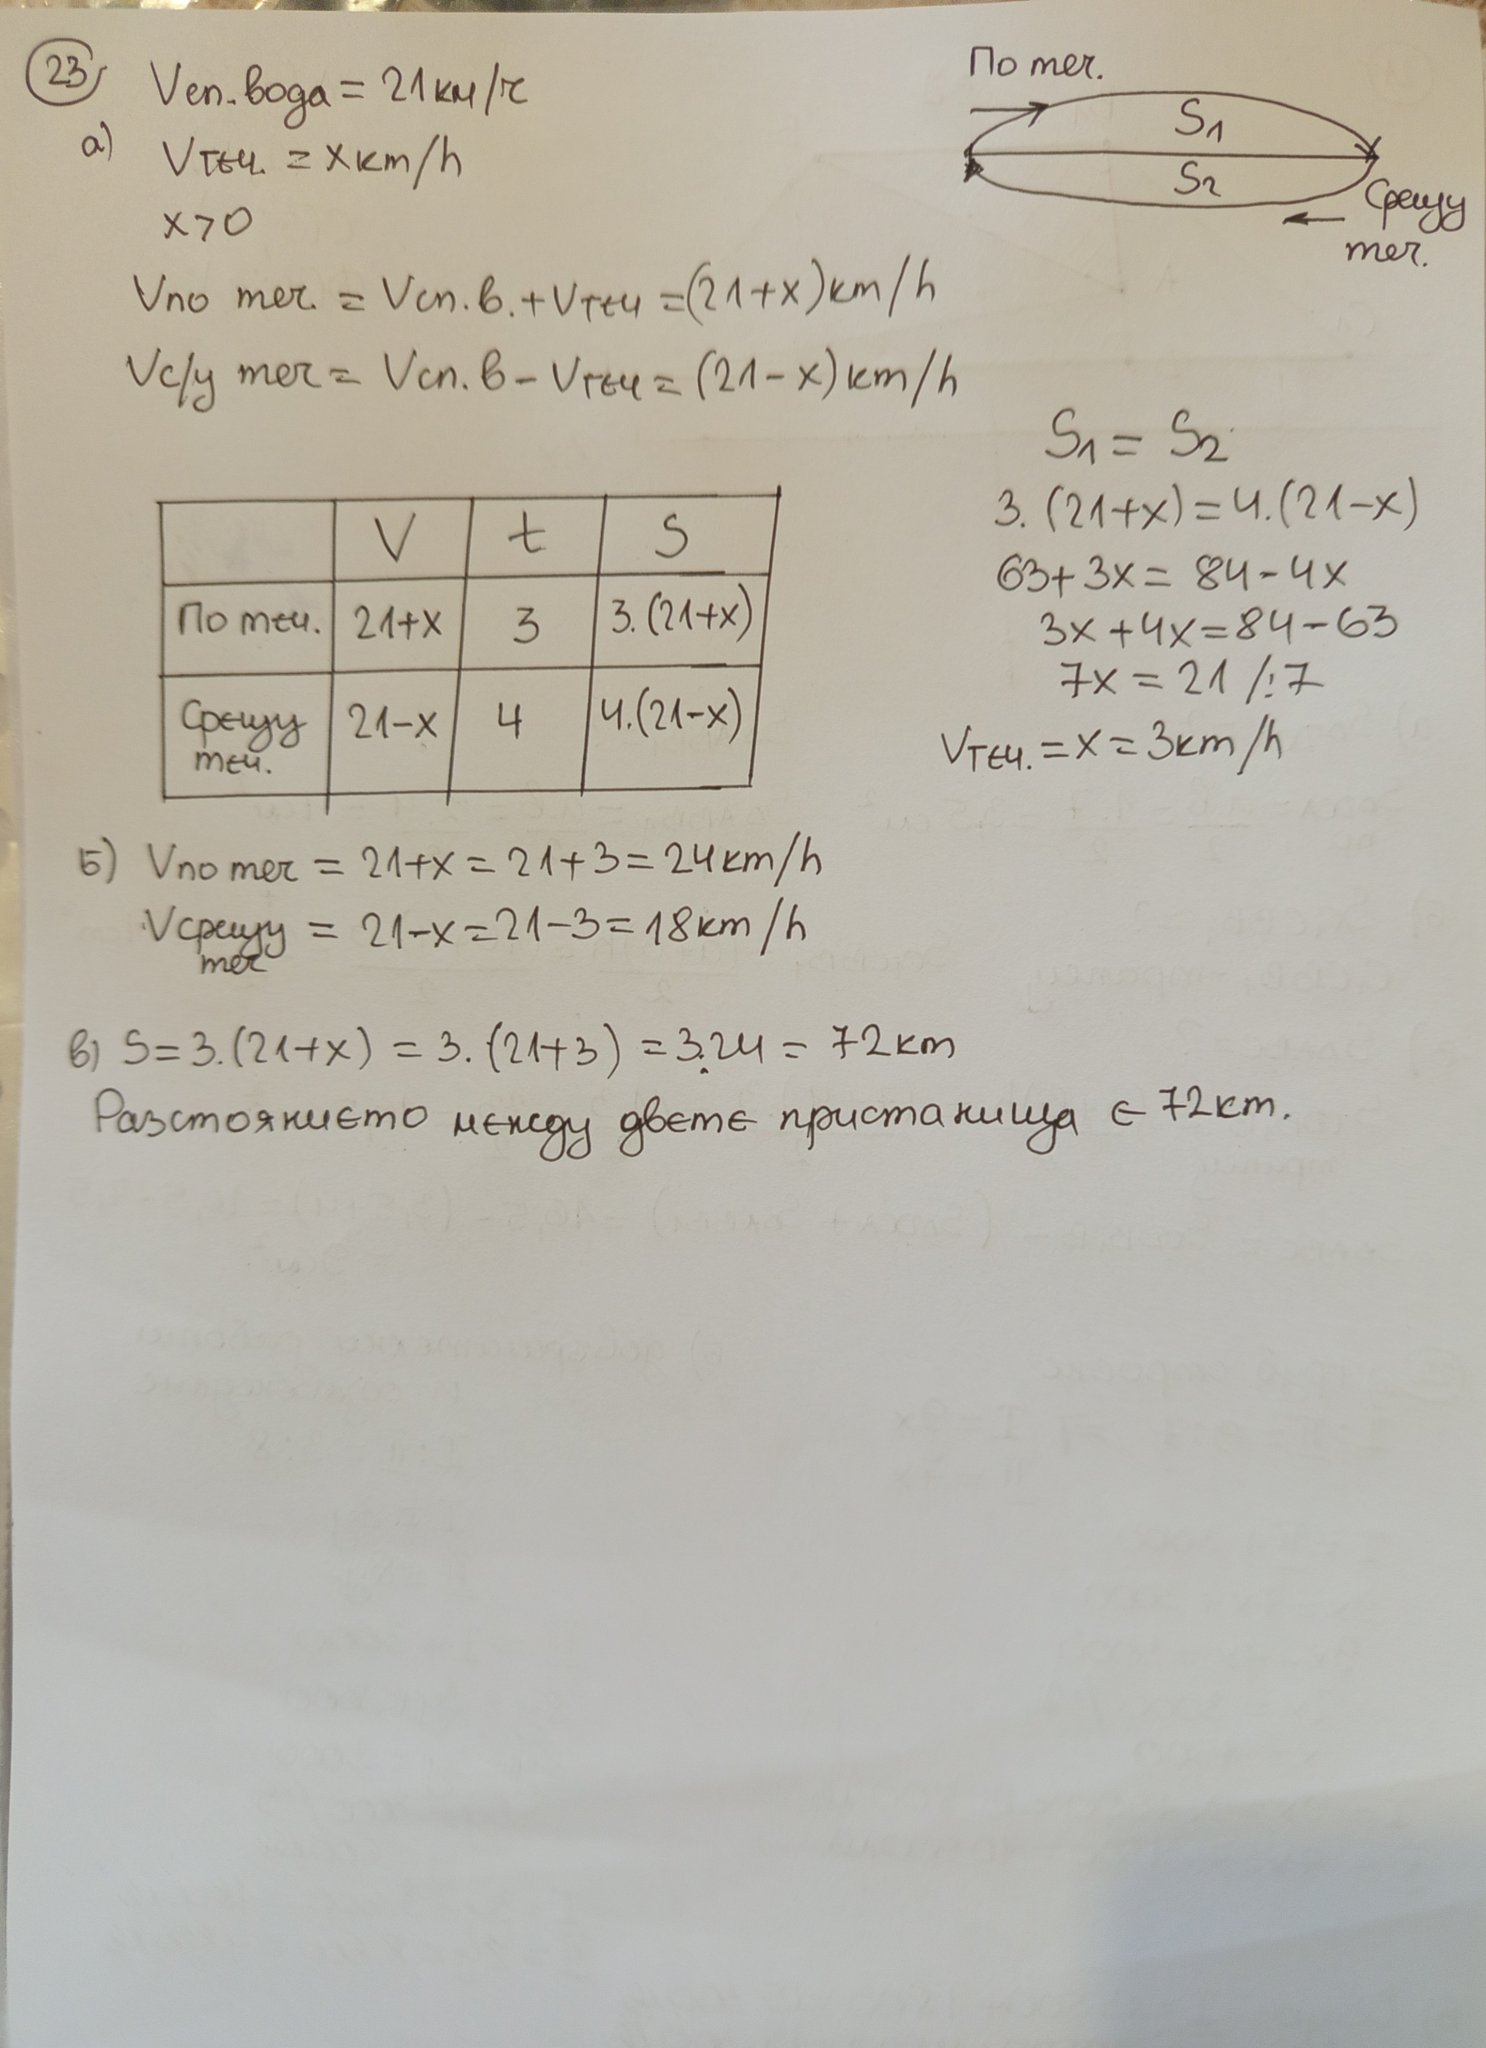 23
Vсп. вода = 21 км/ч
а) Vтеч. = x km/h
x>0
По теч.
S1
S2
Срещу
теч.
Vпо теч. = Vсп. в. + Vтеч = (21+x) km/h
Vс/у теч = Vсп. в - Vтеч = (21-x) km/h
V t S
По теч. 21+x 3 3.(21+x)
Срещу
теч. 21-x 4 4.(21-x)
S1 = S2
3. (21+x) = 4.(21-x)
63+3x = 84-4x
3x+4x=84-63
7x = 21 /:7
Vтеч. = x = 3km/h
б) Vпо теч = 21+x = 21+3 = 24km/h
Vсрещу теч = 21-x = 21-3 = 18km/h
в) S = 3.(21+x) = 3.(21+3) = 3.24 = 72km
Разстоянието между двете пристанища е 72km.